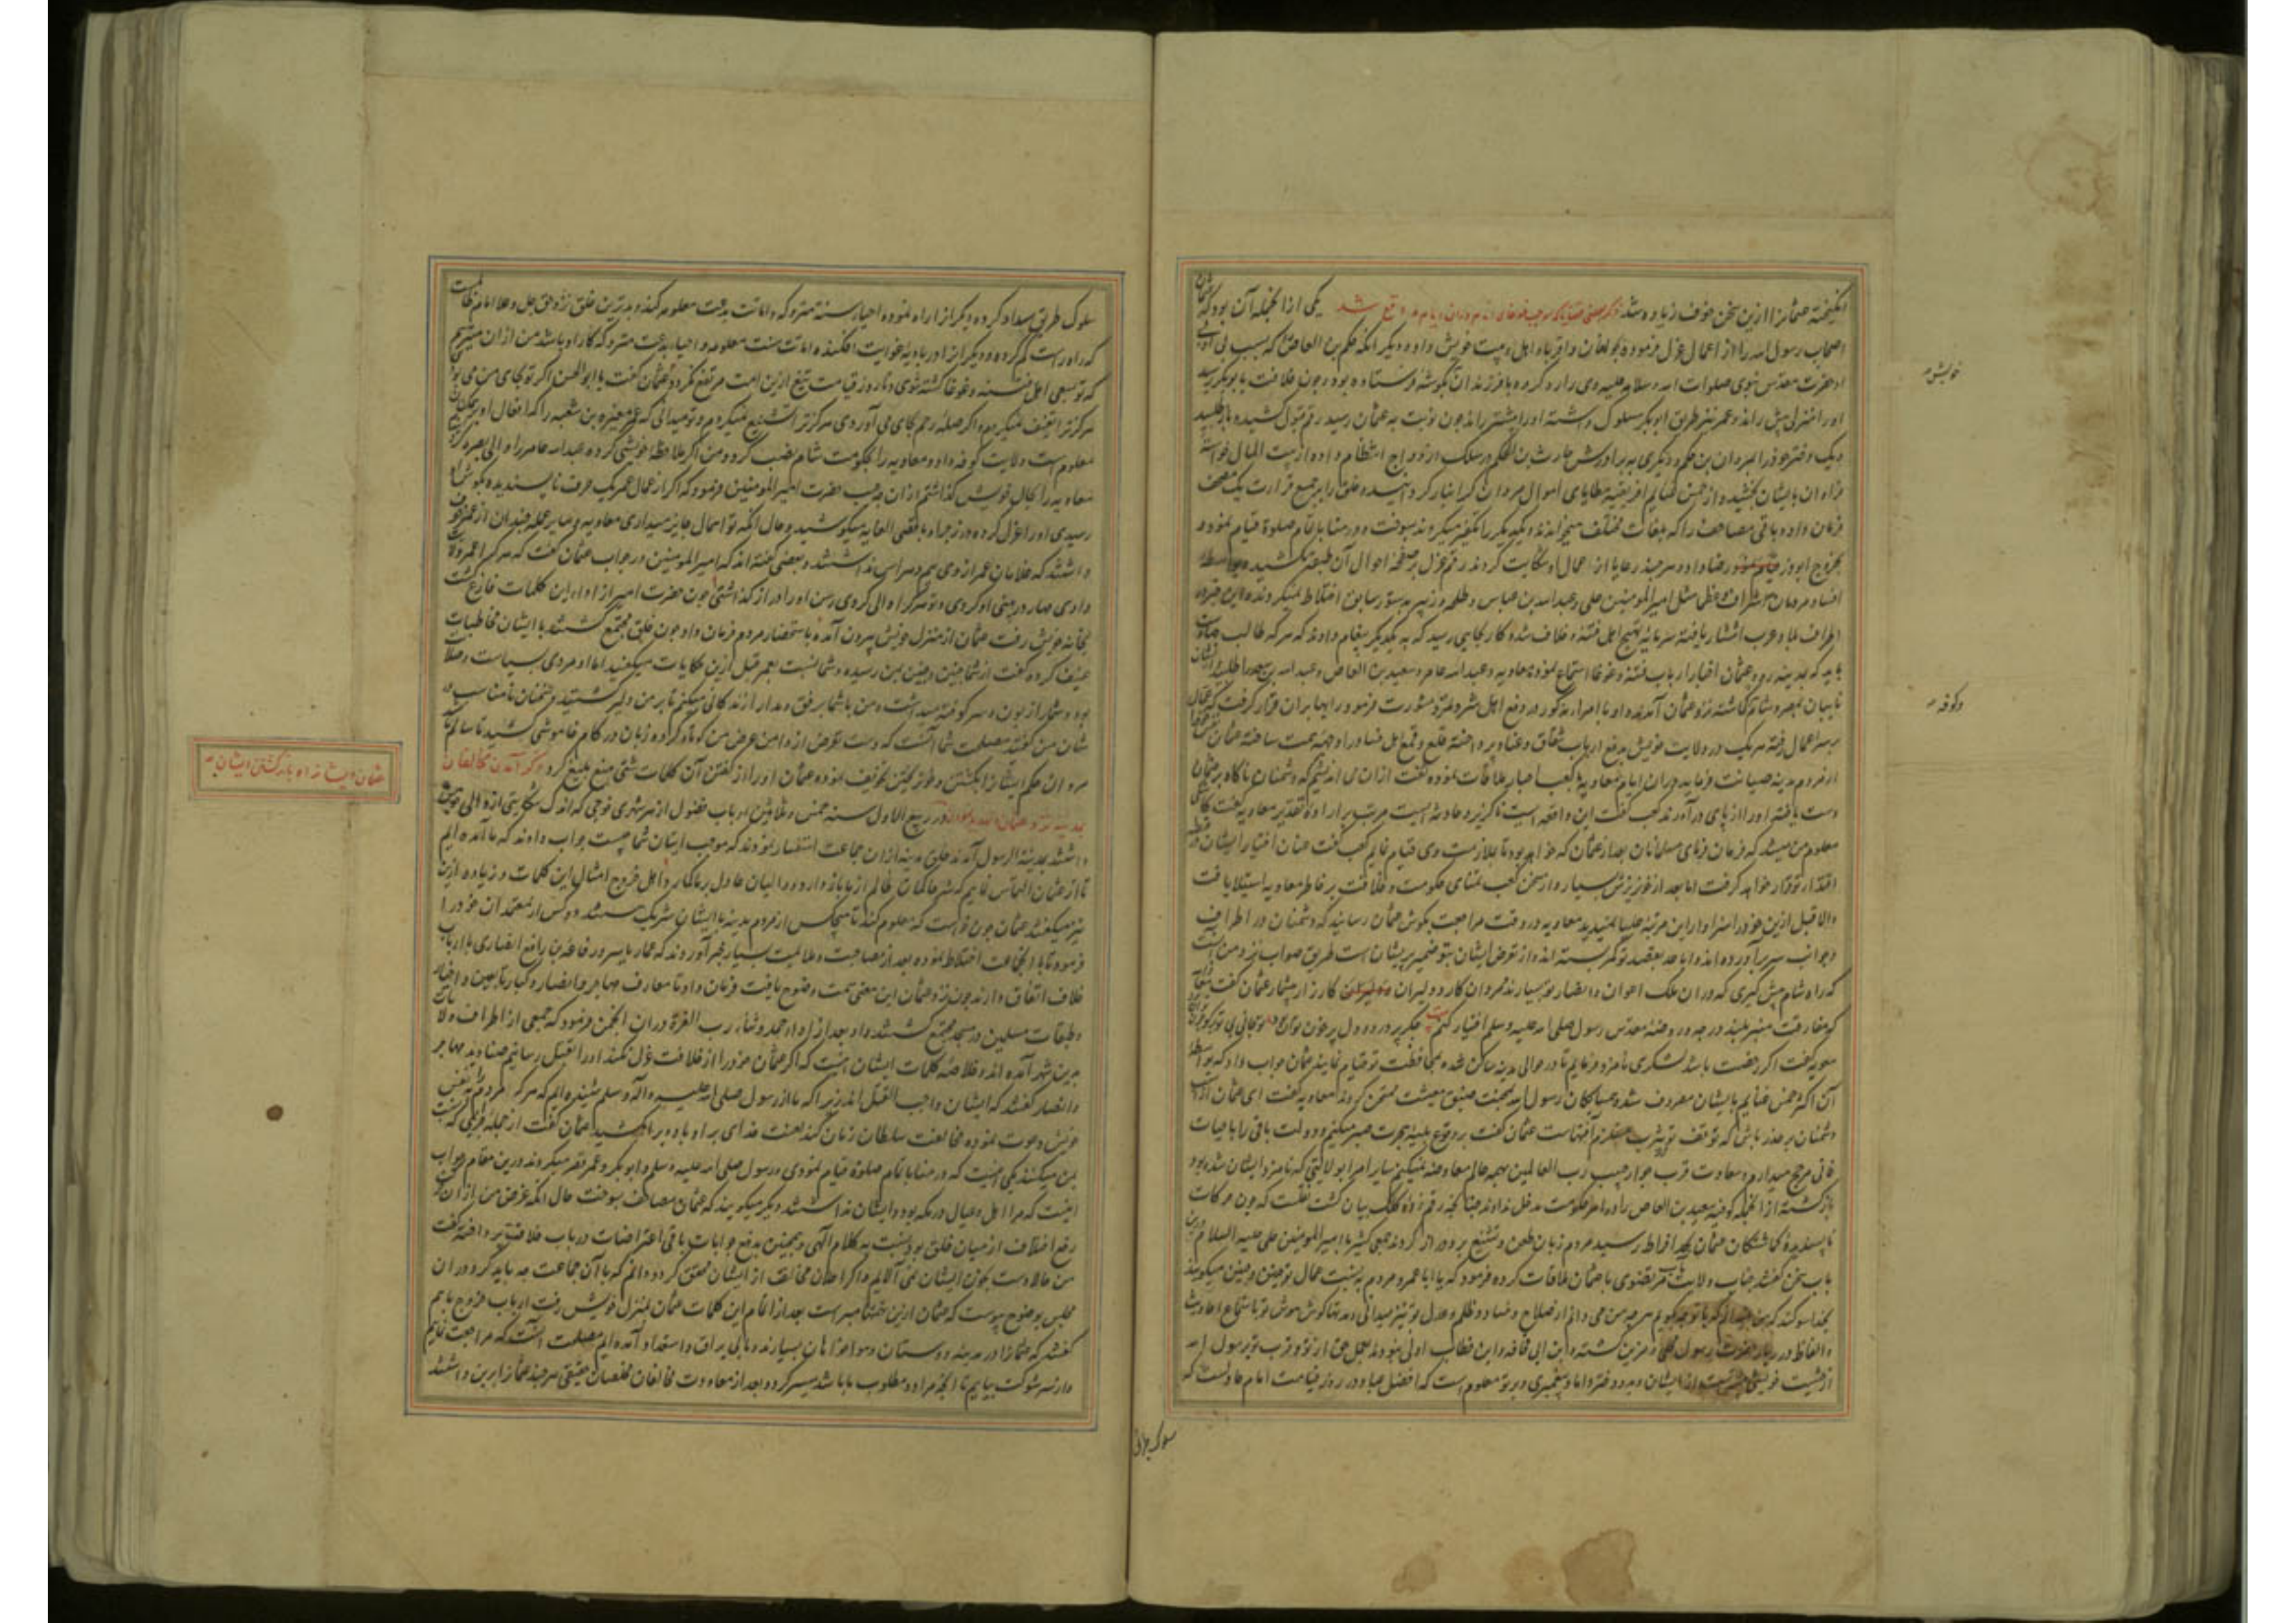 انگیخته عثمانرا ازین سخن خوف زیاده شد ذکر بعضی قضایا که موجب غوغای انام در آن ایام واقع شد یکی از آنجمله آن بود که عثمان
اصحاب رسول الله را از اعمال عزل فرموده بجوانان و اقربا و اهل بیت خویش داده و دیگر آنکه حکم بن العاص که بسبب بی ادبی
از حضرت مقدس نبوی صلوات الله و سلامه علیه وی را رد کرده با فرزندان بگوشه فرستاده بود و چون خلافت بابوبکر رسید
او را منزلی پیش راند و عمر نیز طریق ابوبکر مسلوک داشته او را پیشتر راند چون نوبت به عثمان رسید رقم قبول کشیده باز طلبید
و یک دختر خود را بمروان بن حکم و دیگری به برادرش حارث بن الحکم در سلک ازدواج انتظام داده از بیت المال خواسته
فراوان بایشان بخشید و از خمس غنایم افریقیه عطایای اموال مروان گرانبار گردانیده خلق را بر جمع قرائت یک مصحف
فرمان داده باقی مصاحف را که بلغات مختلف میخواندند و یکدیگر را تکفیر میکردند بسوخت و در منا باتمام صلوة قیام نمود و
بخروج ابوذر رضا داد و هر چند رعایا از اعمال او شکایت کردند رقم عزل بر صفحه احوال آن طبقه نکشید و بواسطه
افساد مروان اشراف و عظما مثل امیر المومنین علی و عبدالله بن عباس و طلحه و زبیر بدستور سابق اختلاط نمیکردند این خبر در
اطراف بلاد عرب انتشار یافته سرمایه تهییج اهل فتنه و خلاف شد کار بجایی رسید که به یکدیگر پیغام دادند که هر که طالب جهاد است
باید که بمدینه رود عثمان اخبار ارباب فتنه و غوغا استماع نموده معاویه و عبدالله عامر و سعید بن العاص و عبدالله بن سعد را طلبید ایشان
نایبان بمصر و شام گماشته نزد عثمان آمدند و او با امراء مذکور در دفع اهل شر و فتنه مشورت فرمود و رایها بران قرار گرفت که عمال
بر سر اعمال رفته هر یک در ولایت خویش بدفع ارباب شقاق و عناد پرداخته قلع و قمع اهل فساد را وجهه همت ساخته عثمان
از مردم مدینه صیانت فرماید در آن ایام معاویه با کعب احبار ملاقات نموده گفت ازان می اندیشم که دشمنان ناگاه بر عثمان
دست یافته او را از پای در آورند کعب گفت این واقعه ایست ناگزیر و حادثه ایست مرتب بر اراده تقدیر معاویه گفت کاشکی
معلوم من میشد که فرمان فرمای مسلمانان بعد از عثمان که خواهد بود تا بملازمت وی قیام نمایم کعب گفت عنان اختیار ایشان در قبضه
اقتدار تو قرار خواهد گرفت اما بعد از خونریزش بسیار و از سخن کعب تمنای حکومت و خلافت بر خاطر معاویه استیلا یافت
والا قبل ازین خود را سزاوار این مرتبه علیا نمیدید معاویه در وقت مراجعت بگوش عثمان رسانید که دشمنان در اطراف
و جوانب سر بر آورده اند و اباعد بقصد تو کمر بسته اند و از تعرض ایشان بتو ضمیر پریشان است طریق صواب نزد من آنست
که راه شام پیش گیری که در آن ملک اعوان و انصار تو بسیارند مردان کار و دلیران کارزار بیشمار عثمان گفت
که مفارقت منبر بلند درجه و روضه مقدس رسول صلی الله علیه و سلم اختیار کنم
معویه گفت اگر رخصت باشد لشکری نامزد فرمایم تا در حوالی مدینه ساکن شده بمحافظت تو قیام نمایند عثمان جواب داد که بواسطه
آن اکثر خمس غنایم بایشان مصروف شود و همسایگان رسول الله بمحنت ضیق معیشت ممتحن گردند معاویه گفت ای عثمان از
دشمنان بر حذر باش که توقف تو بیثرب مستلزم آفتهاست عثمان گفت بر وقوع بلیه و هجرت صبر میکنم و دولت باقی را با حیات
فانی مرجح میدارم و سعادت قرب جوار حبیب رب العالمین بهمه عالم معاوضه نمیکنم سایر امرا بولایتی که نامزد ایشان شده بود
بازگشتند از آنجمله کوفه سعید بن العاص را در امر حکومت مدخل ندادند چنانچه رقم زده کلک بیان گشت نقلست که چون حرکات
ناپسندیده گماشتگان عثمان بحد افراط رسید مردم زبان طعن و تشنیع برو دراز کردند جمعی کثیر با امیرالمومنین علی علیه السلام درین
باب سخن گفتند جناب ولایت مآب مرتضوی با عثمان ملاقات کرده فرمود که یا ابا عمرو مردم به نسبت عمال تو چنین و چنین میگویند
بخدا سوگند که من نمیدانم که با تو چه گویم هر چه من می دانم از صلاح و فساد و ظلم و عدل تو نیز میدانی و نه تنها گوش هوش تو باستماع احادیث
و الفاظ درر بار حضرت رسول مزین گشته و ابن ابی قحافه و ابن خطاب اولی نبودند بعمل حق از تو و قرب تو برسول الله
از حیثیت خویشی بیشتر است از ایشان و بدو دختر داماد پیغمبری و بر تو معلوم است که افضل عباد در روز قیامت امام عادلست که
خویش
و کوفه
سلوک طریق
سلوک طریق سداد کرده و دیگر انرا راه نموده احیاء سنة متروکه و اماتت بدعت معلومه کند و بدترین خلق نزد حق جل و علا امام ظالمست
که راه راست گم کرده و دیگر انرا در بادیه غوایت افکنده اماتت سنت معلومه و احیاء بدعت متروکه کار او باشد من ازان میترسم
که تو بسعی اهل فتنه و غوغا کشته شوی و تا روز قیامت تیغ ازین امت مرتفع نگردد عثمان گفت یا ابوالحسن اگر تو بجای من می بودی
هرگز ترا تعنیف نمیکردم و اگر صله رحم بجای می آوردی هرگز ترا تشنیع نمیکردم و تو میدانی که عمر مغیره بن شعبه را که افعال او بر همگنان
معلوم است ولایت کوفه داد و معاویه را بحکومت شام نصب کرد و من اگر ملاحظه خویشی کرده عبدالله عامر را والی بصره کردم و
معاویه را بحال خویش گذاشتم از ان چه عجب حضرت امیر المومنین فرمود که اگر از عمال عمر یک حرف ناپسندیده بگوش او
رسیدی او را عزل کرده و در جزاء باقصی الغایه میکوشید و حال آنکه تو اهمال جایز میداری معاویه و سایر عمله چندان از عمر خوف
داشتند که غلامان عمر از وی بیم و هراس نداشتند و بعضی گفته اند که امیر المومنین در جواب عثمان گفت که هر کرا عمر ولایت
دادی مهار در بینی او کردی و تو هر کرا والی کردی رسن او را دراز گذاشتی چون حضرت امیر از اداء این کلمات فارغ گشت
بخانه خویش رفت عثمان از منزل خویش بیرون آمده باستحضار مردم فرمان داد چون خلق مجتمع گشتند با ایشان مخاطبات
عنیف کرده گفت از شما چنین و چنین بمن رسیده و شما نسبت بعمر قبل ازین حکایات میگفتید اما او مردی بسیاست و صلابت
بود و شما را زبون و سر کوفته میداشت و من با شما برفق و مدارا زندگانی میکنم تا بر من دلیر گشتید و سخنان نامناسب در
شان من گفتید مصلحت شما آنست که دست تعرض از دامن عرض من کوتاه کرده زبان در کام خاموشی کشید تا سالم مانید
مروان حکم ایشانرا بکشتن و خون ریختن تخویف نموده عثمان او را از گفتن آن کلمات شتی منع بلیغ کرد ذکر آمدن مخالفان
بمدینه نزد عثمان در ربیع الاول سنه خمس و ثلاثین ارباب فضول از هر شهری فوجی که اندک شکایتی از والی خویش
داشتند بمدینة الرسول آمدند خلق مدینه ازان جماعت استفسار نمودند که موجب اتیان شما چیست جواب دادند که ما آمده ایم
تا از عثمان التماس نمایم که شر حاکمان ظالم از ما باز دارد و والیان عادل بر ما گمارد و اهل خروج امثال این کلمات و زیاده ازین
نیز میگفتند عثمان چون خواست که معلوم کند تا هیچکس از مردم مدینه با ایشان شریک هستند دو کس از معتمدان خود را
فرمود تا با آنجماعت اختلاط نموده بعد از مصاحبت و ملایمت بسیار خبر آوردند که عمار یاسر و رفاعه بن رافع انصاری با ارباب
خلاف اتفاق دارند چون نزد عثمان این معنی سمت وضوح یافت فرمان داد تا معارف مهاجر و انصار و کبار تابعین و اخیار
و طبقات مسلمین در مسجد مجتمع گشتند و او بعد از اداء حمد و ثناء رب العزة در ان انجمن فرمود که جمعی از اطراف بلاد
برین شهر آمده اند و خلاصه کلمات ایشان اینست که اگر عثمان خود را از خلافت عزل نکند او را بقتل رسانیم صنادید مهاجر
و انصار گفتند که ایشان واجب القتل اند زیرا که ما از رسول صلی الله علیه و آله و سلم شنیده ایم که هر که مردم را بنفس
خویش دعوت نموده مخالفت سلطان زمان کند لعنت خدای بر او باد و برا بکشید عثمان گفت از جمله قبایحی که نسبت
بمن میکنند یکی اینست که در منا باتمام صلوة قیام نمودی و رسول صلی الله علیه و سلم و ابوبکر و عمر قصر میکردند درین مقام جواب
اینست که مرا اهل و عیال در مکه بود و ایشان نداشتند دیگر میگویند که عثمان مصاحف بسوخت حال آنکه غرض من از ان
رفع اختلاف از میان خلق بود نسبت به کلام الهی و همچنین بدفع جوابات باقی اعتراضات در باب خلافت پرداخته گفت
من حالا دست بخون ایشان نمی آلایم و اگر اعلان مخالفت از ایشان محقق گردد دانم که با آن جماعت چه باید کرد در ان
مجلس بوضوح پیوست که عثمان ازین تهمتها مبراست بعد از اتمام این کلمات عثمان بمنزل خویش رفت ارباب خروج باهم
گفتند که عثمانرا در مدینه دوستان و هواخواهان بسیارند و ما بی یراق و استعداد آمده ایم مصلحت آنست که مراجعت نمایم
و از سر شوکت بیایم تا آنچه مراد و مطلوب ما باشد میسر گردد و بعد از معاودت مخالفان مخلصان حقیقی هر چند عثمانرا برین داشتند